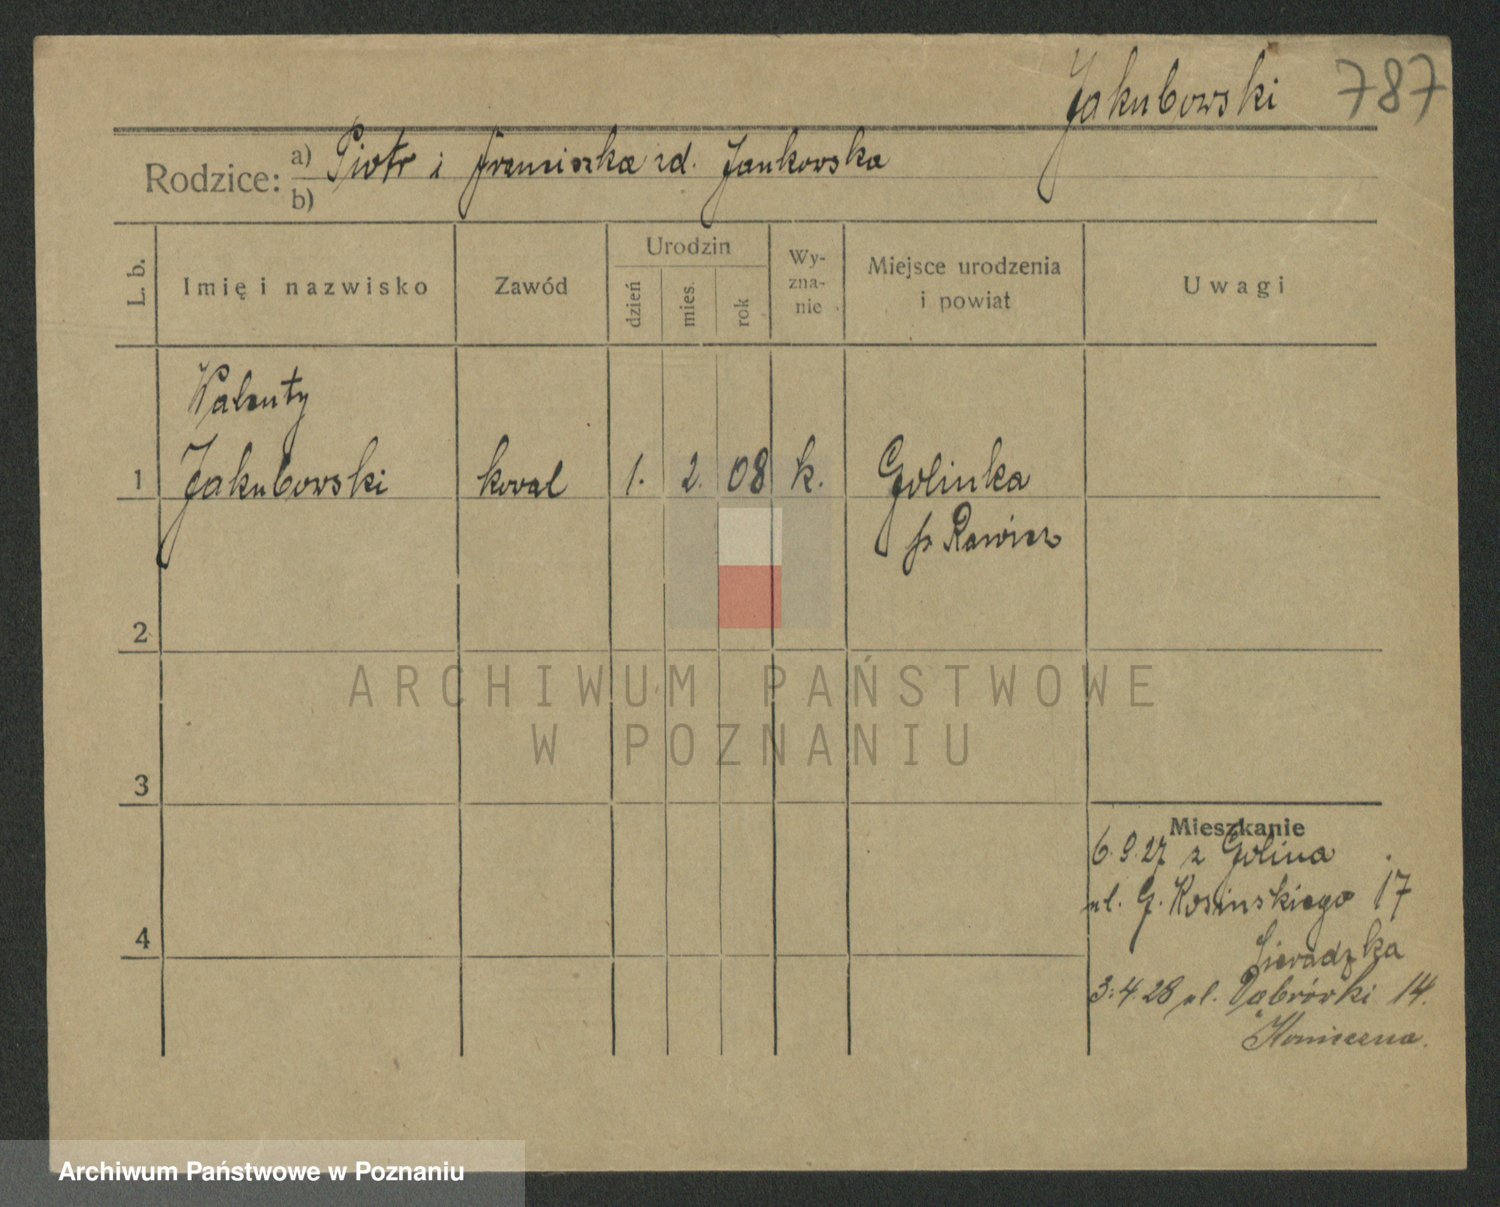 Jakubowski 787
Rodzice: a) Piotr i Franciszka zd. Jankowska
b)
L. b. Imię i nazwisko Zawód Urodzin dzień mies. rok Wy-zna-nie Miejsce urodzenia i powiat Uwagi
Walenty
1 Jakubowski kowal 1. 2. 08 k. Golinka
p. Rawicz
2
ARCHIWUM PAŃSTWOWE
W POZNANIU
3
Mieszkanie
6.9.27 z Golina
ul. G. Kosinskiego 17
Sieradzka
4
3.4.28 ul. Dąbrówki 14.
Konieczna.
Archiwum Państwowe w Poznaniu